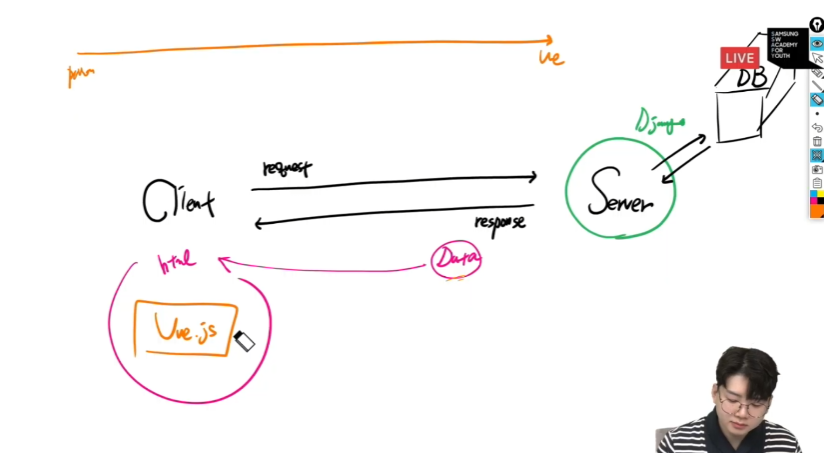 LIVE
SAMSUNG
SW
ACADEMY
FOR
YOUTH
DB
Django
request
Client
Server
response
html
Data
Vue.js